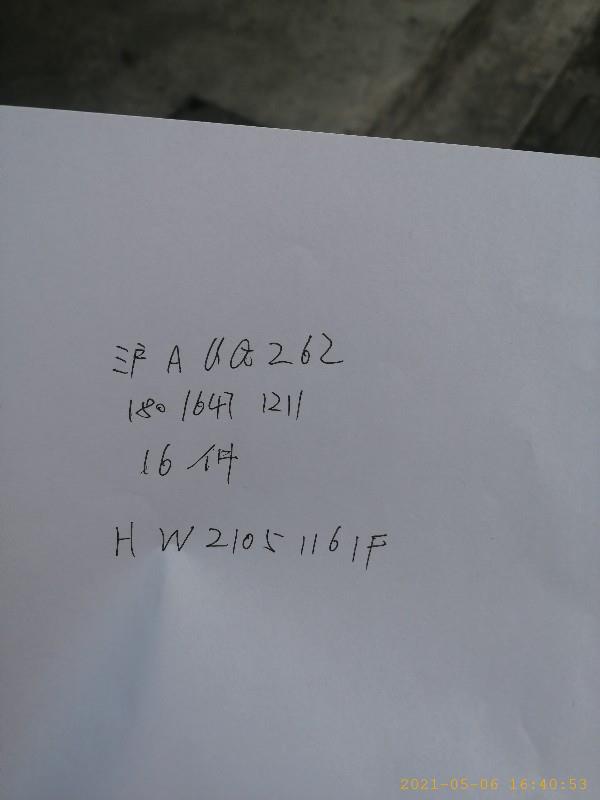 沪A UQ262
180 1647 1211
16件
HW21051161F
2021-05-06 16:40:53